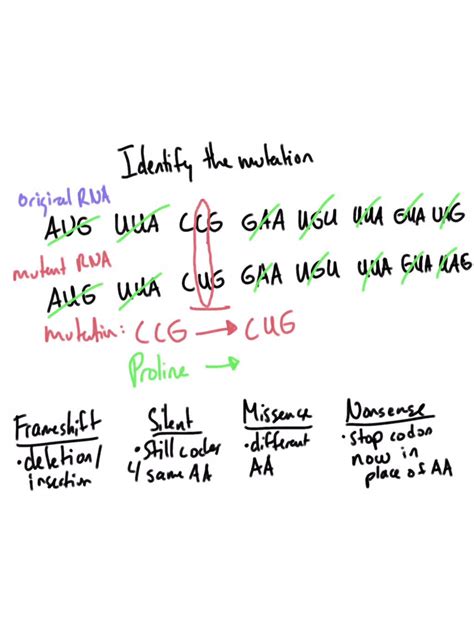 Identify the mutation
Original RNA
AUG UUA CCG GAA UGU UUA GUA UAG
mutant RNA
AUG UUA CUG GAA UGU UUA GUA UAG
Mutation: CCG → CUG
Proline →
Frameshift Silent Missence Nonsense
• deletion/ • Still codes • different • stop codon
insertion 4 same AA AA now in
place of AA